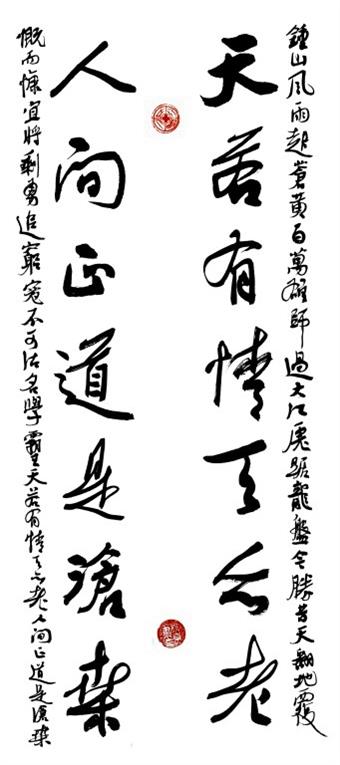 鍾山风雨起蒼黃百萬雄師過大江虎踞龍盤今勝昔天翻地覆
天若有情天亦老
人间正道是滄桑
慨而慷宜將剩勇追窮寇不可沽名學霸王天若有情天亦老人间正道是滄桑